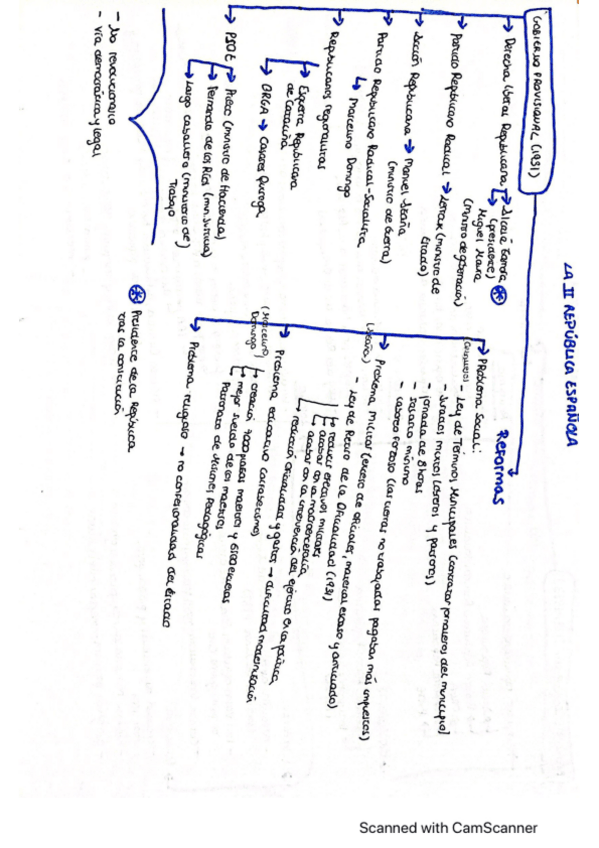 LA II REPÚBLICA ESPAÑOLA
GOBIERNO PROVISIONAL (1931)
→ Derecha liberal Republicana → Alcalá Zamora (presidente) *
→ Miguel Maura (ministro de gobernación)
→ Partido Republicano Radical → Lerroux (ministro de Estado)
→ Acción Republicana → Manuel Azaña (ministro de Guerra)
→ Partido Republicano Radical-Socialista
↳ Marcelino Domingo
→ Republicanos regionalistas
→ Esquerra Republicana de Cataluña
→ ORGA → Casares Quiroga
→ PSOE → Prieto (ministro de Hacienda)
→ Fernando de los Ríos (min. Justicia)
→ Largo Caballero (ministro de Trabajo)
- No revolucionario
- vía democrática y legal
* Presidente de la República tras la constitución
Reformas
→ Problema Social:
- Ley de Términos Municipales (contratar jornaleros del municipio)
- Jurados mixtos (obreros y patronos)
- jornada de 8 horas
- salario mínimo
- laboreo forzoso (las tierras no trabajadas pagaban más impuestos)
→ Problema militar (exceso de oficiales, material escaso y anticuado)
(Azaña)
- Ley de Retiro de la Oficialidad (1931)
→ reducir efectivos militares
→ acabar con la macrocefalia
→ acabar con la intervención del ejército en la política
→ reducción oficialidad y gastos → dificultad modernización
→ Problema educativo (analfabetismo)
(Marcelino Domingo)
→ creación 7000 plazas maestros y 6500 escuelas
→ mejor sueldo de los maestros
Patronato de Misiones Pedagógicas
→ Problema religioso → no confesionalidad del Estado
Scanned with CamScanner